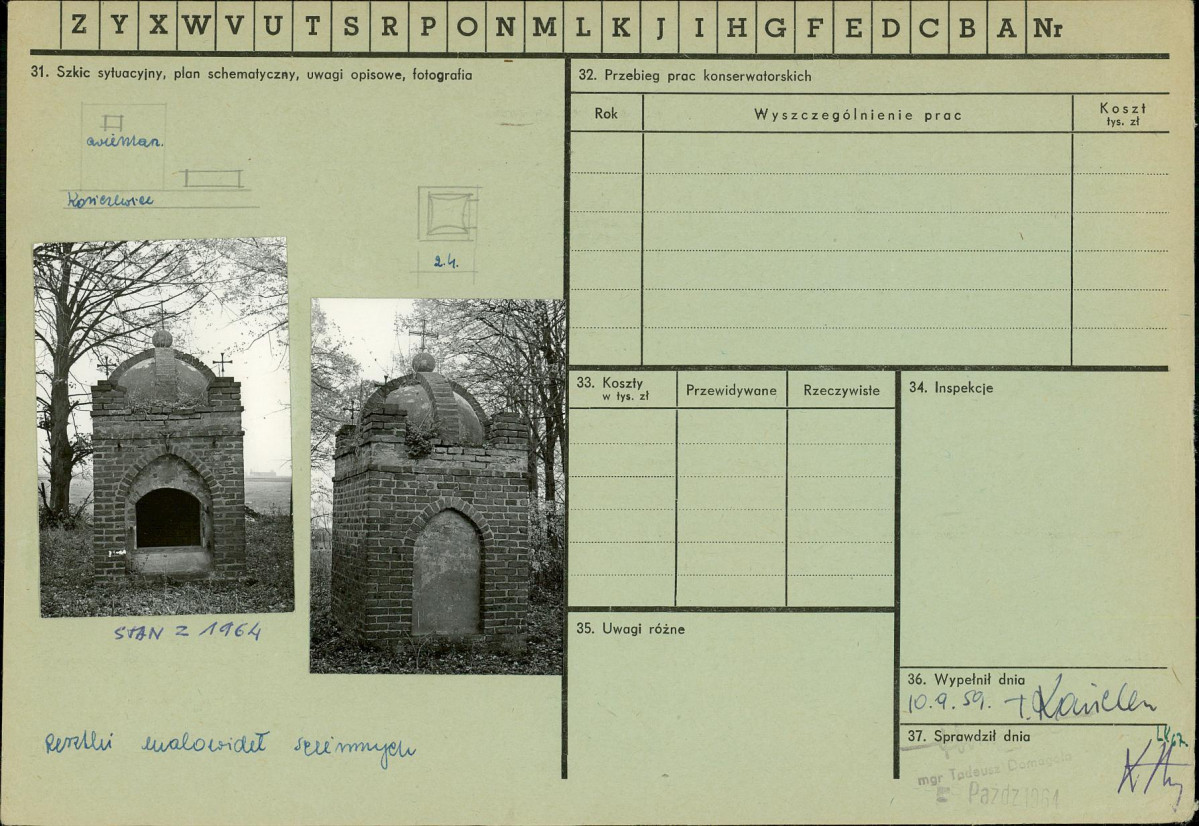 Z Y X W V U T S R P O N M L K J I H G F E D C B A Nr
31. Szkic sytuacyjny, plan schematyczny, uwagi opisowe, fotografia
2.4.
STAN Z 1964
Resztki malowideł ściennych
32. Przebieg prac konserwatorskich
Rok
Wyszczególnienie prac
Koszt
tys. zł
33. Koszty
w tys. zł
Przewidywane
Rzeczywiste
34. Inspekcje
35. Uwagi różne
36. Wypełnił dnia
10.9.59.
37. Sprawdził dnia
mgr Tadeusz Domagała
Paźdz 1964